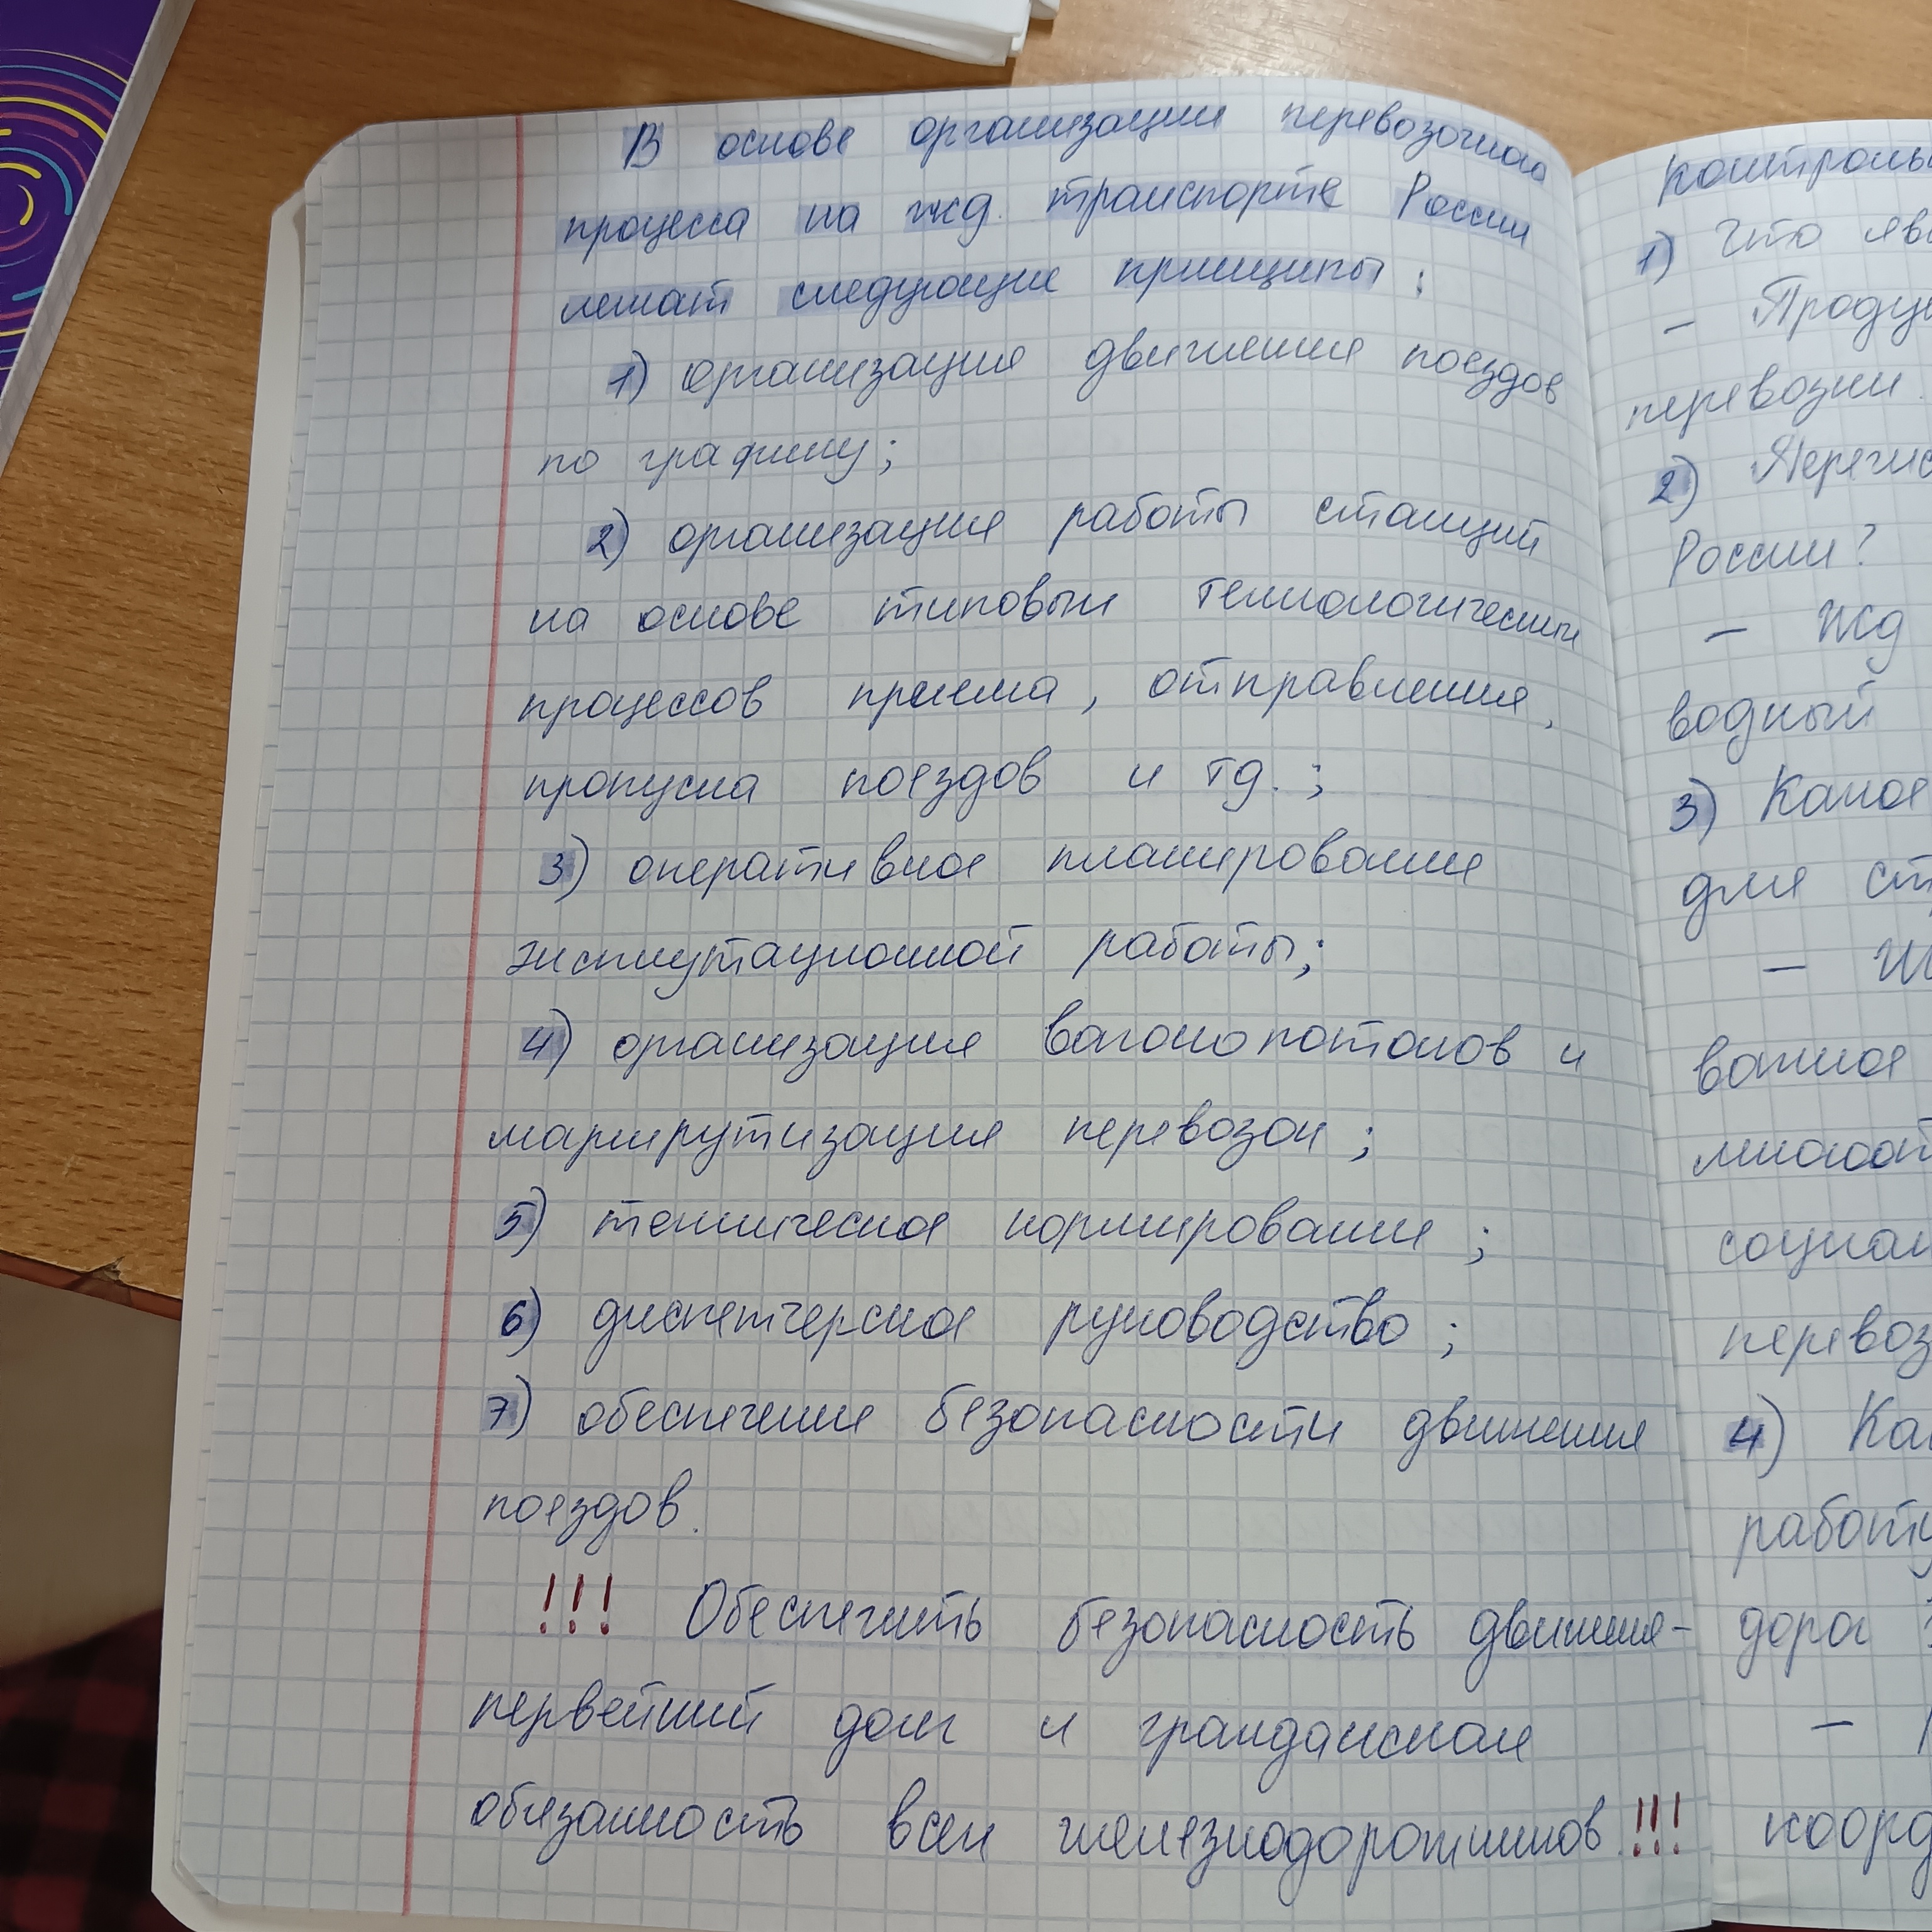 В основе организации перевозочного
процесса на жд. транспорте России
лежат следующие принципы:
1) организация движения поездов
по графику;
2) организация работы станций
на основе типовых технологических
процессов приема, отправления,
пропуска поездов и тд.;
3) оперативное планирование
эксплутационной работы;
4) организация вагонопотоков и
маршрутизация перевозок;
5) техническое нормирование;
6) диспетчерское руководство;
7) обеспечение безопасности движения
поездов.
!!! Обеспечить безопасность движения -
первейший долг и гражданская
обязанность всех железнодорожников.!!!
1) Что
–
перевозки.
2)
России?
– жд
водный
3) Какое
для
–
важное
4)
работу
дорог
–